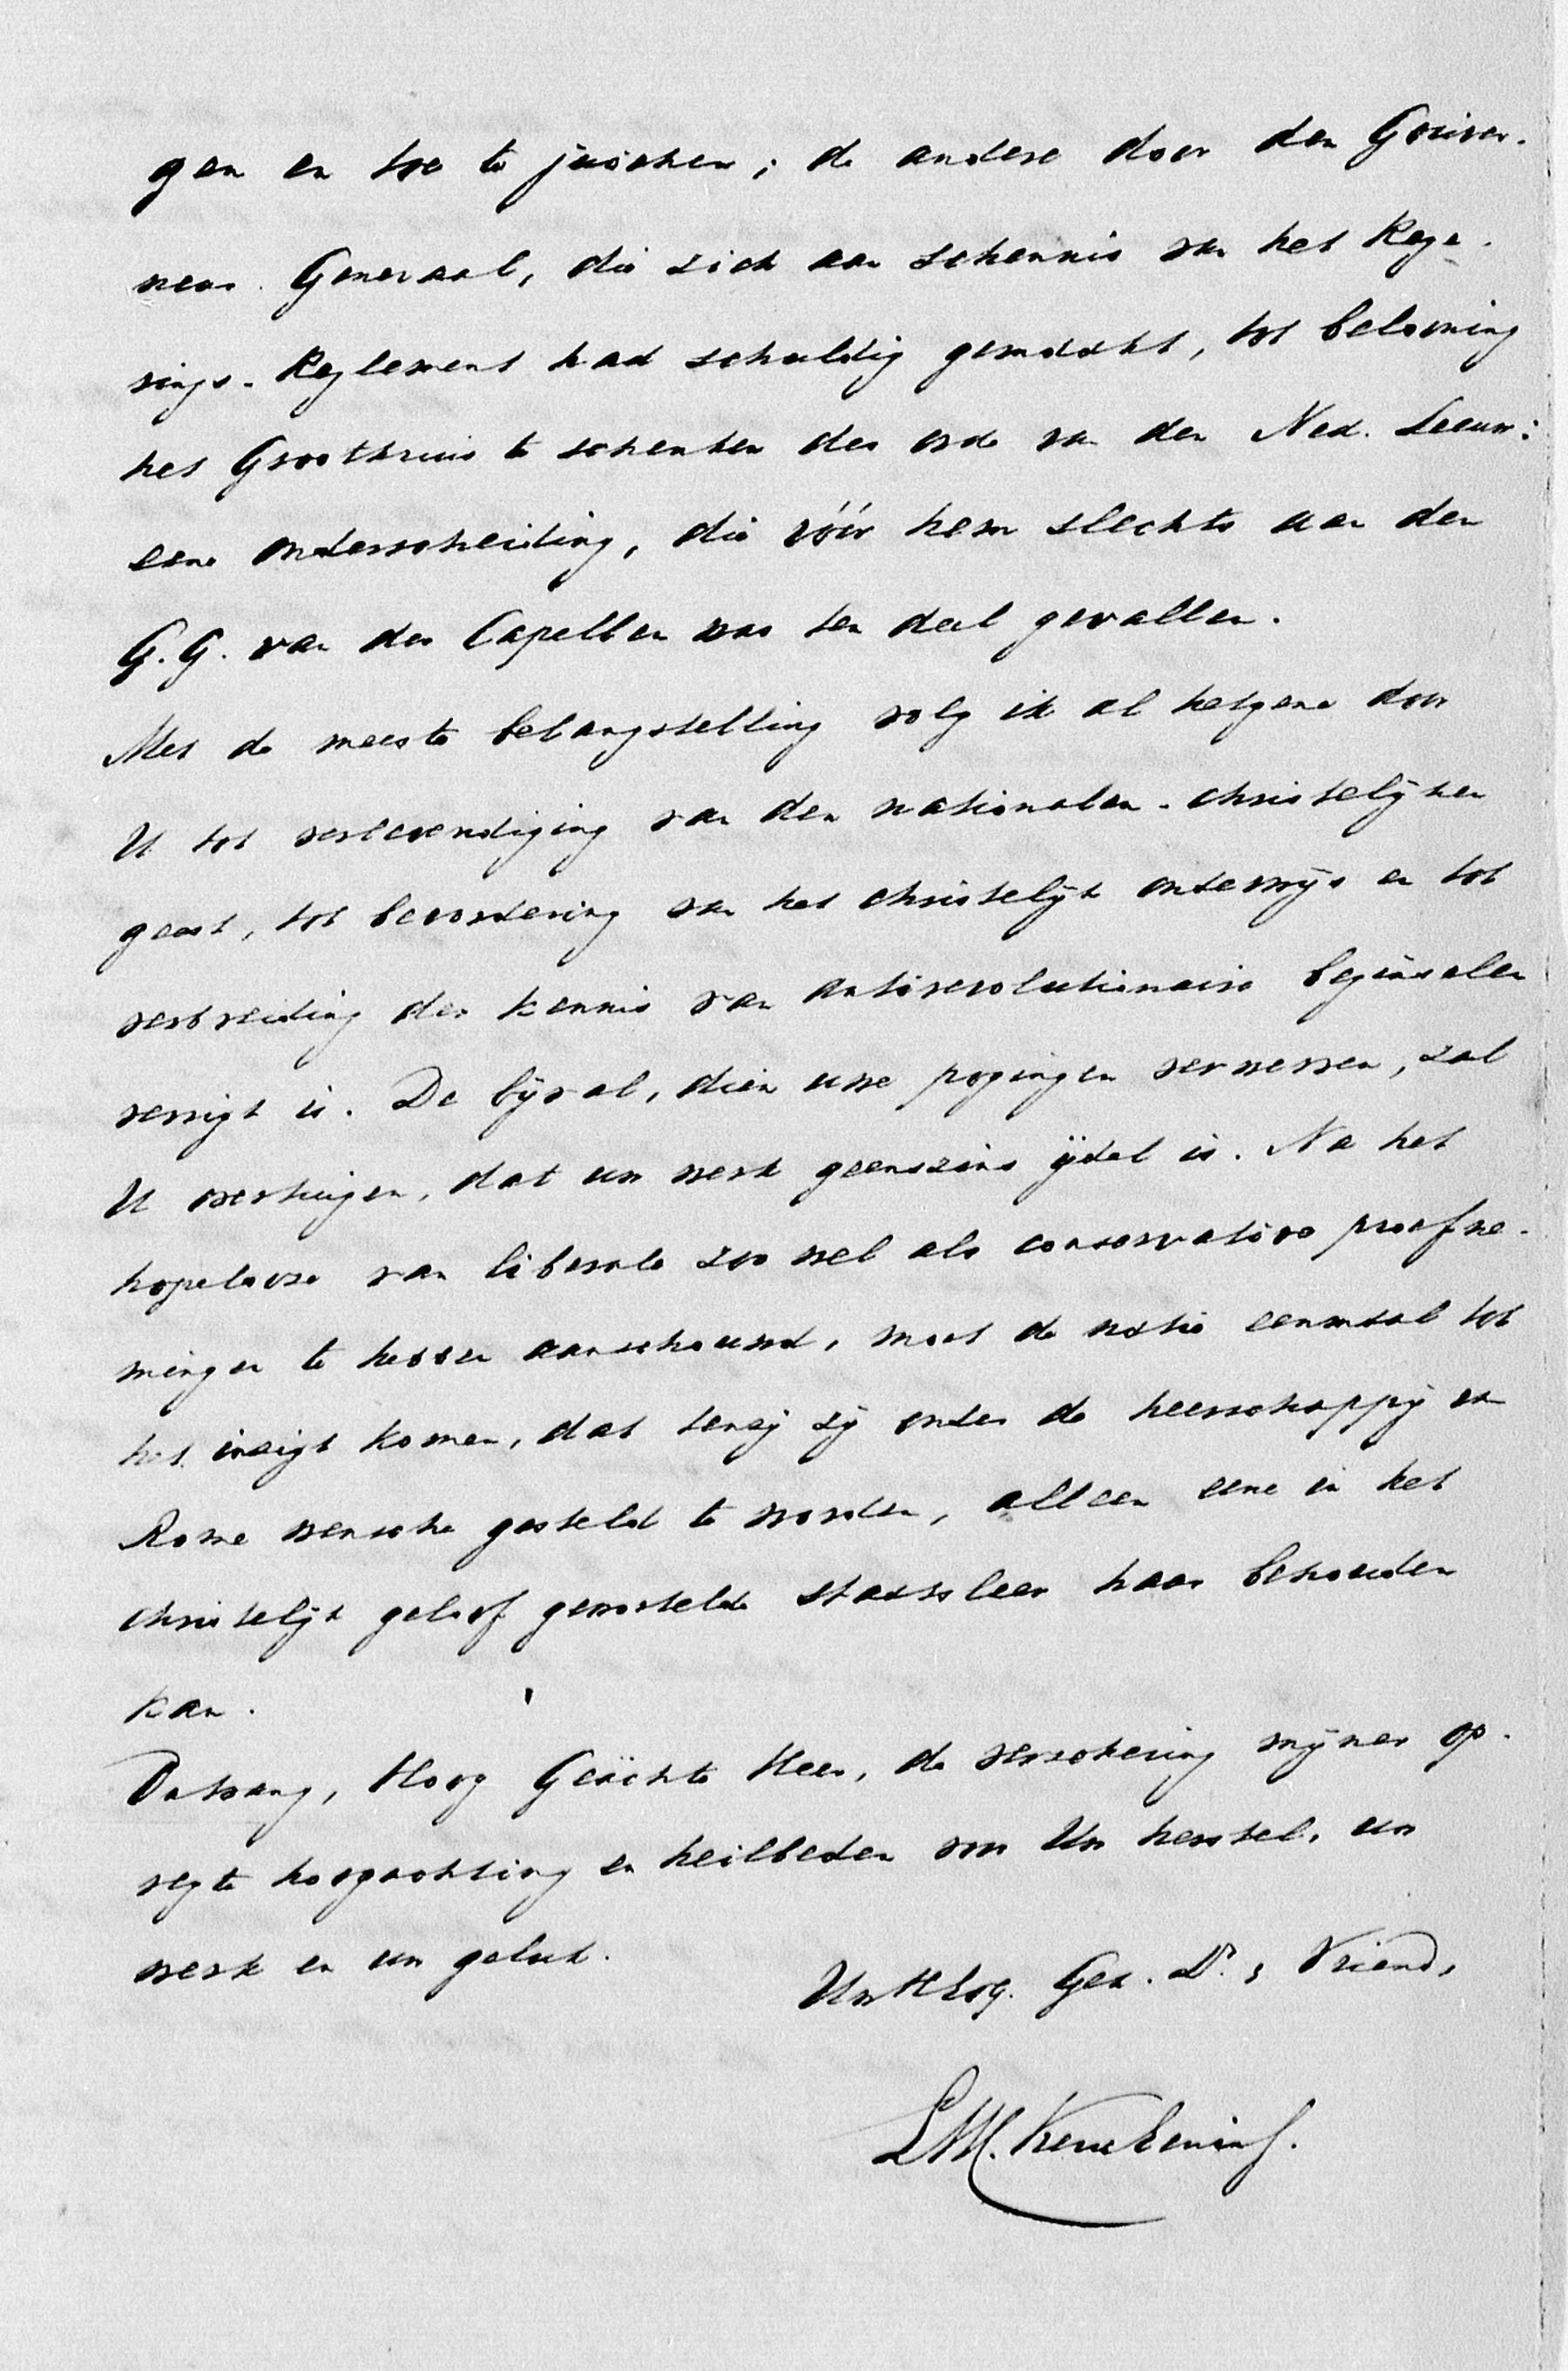 gen en toe te juichen; de andere door den Gouver-
neur Generaal, die zich aan schennis van het Rege-
rings-Reglement had schuldig gemaakt, tot belooning
het Grootkruis te schenken der orde van den Ned. Leeuw:
eene onderscheiding, die vóór hem slechts aan den
G. G. van der Capellen was ten deel gevallen.
Met de meeste belangstelling volg ik al hetgene door
U tot verlevendiging van den nationalen-christelijken
geest, tot bevordering van het christelijk onderwijs en tot
verbreiding der kennis van antirevolutionaire beginselen
verrigt is. De bijval, dien uwe pogingen verwerven, zal
U overtuigen, dat uw werk geenszins ijdel is. Na het
hopelooze van liberale zoo wel als conservative proefne-
mingen te hebben aanschouwd, moet de natie eenmaal tot
het inzigt komen, dat tenzij zij onder de heerschappij van
Rome wensche gesteld te worden, alleen eene in het
christelijk geloof gewortelde staatsleer haar behouden
kan.
Ontvang, Hoog Geächte Heer, de verzekering mijner op-
regte hoogachting en heilbeden voor Uw herstel, uw
werk en uw geluk.
UwHoog. Gez. Dr. & Vriend,
L.W.C. Keuchenius.